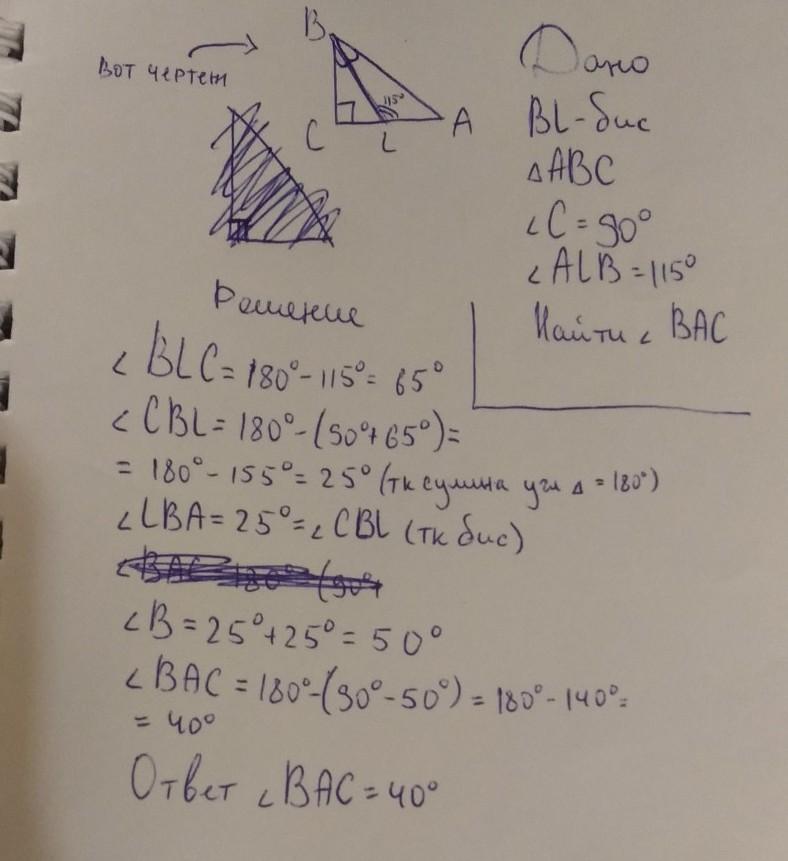 Вот чертеж
B
115°
C
L
A
Дано
BL-бис
△ABC
∠C = 90°
∠ALB = 115°
Найти ∠ BAC
Решение
∠ BLC = 180° - 115° = 65°
∠ CBL = 180° - (90° + 65°) =
= 180° - 155° = 25° (тк сумма угл △ = 180°)
∠ LBA = 25° = ∠ CBL (тк бис)
∠ B = 25° + 25° = 50°
∠ BAC = 180° - (90° - 50°) = 180° - 140° =
= 40°
Ответ ∠ BAC = 40°